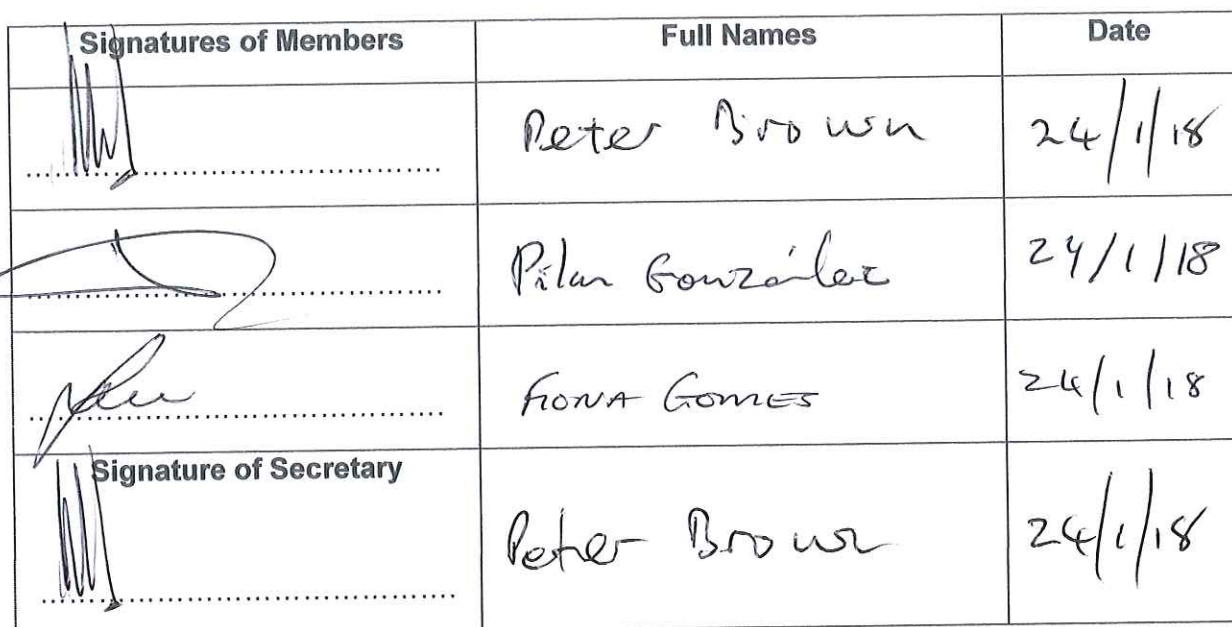 Signatures of Members Full Names Date
Peter Brown 24/1/18
Pilar González 24/1/18
FIONA GOMES 24/1/18
Signature of Secretary
Peter Brown 24/1/18